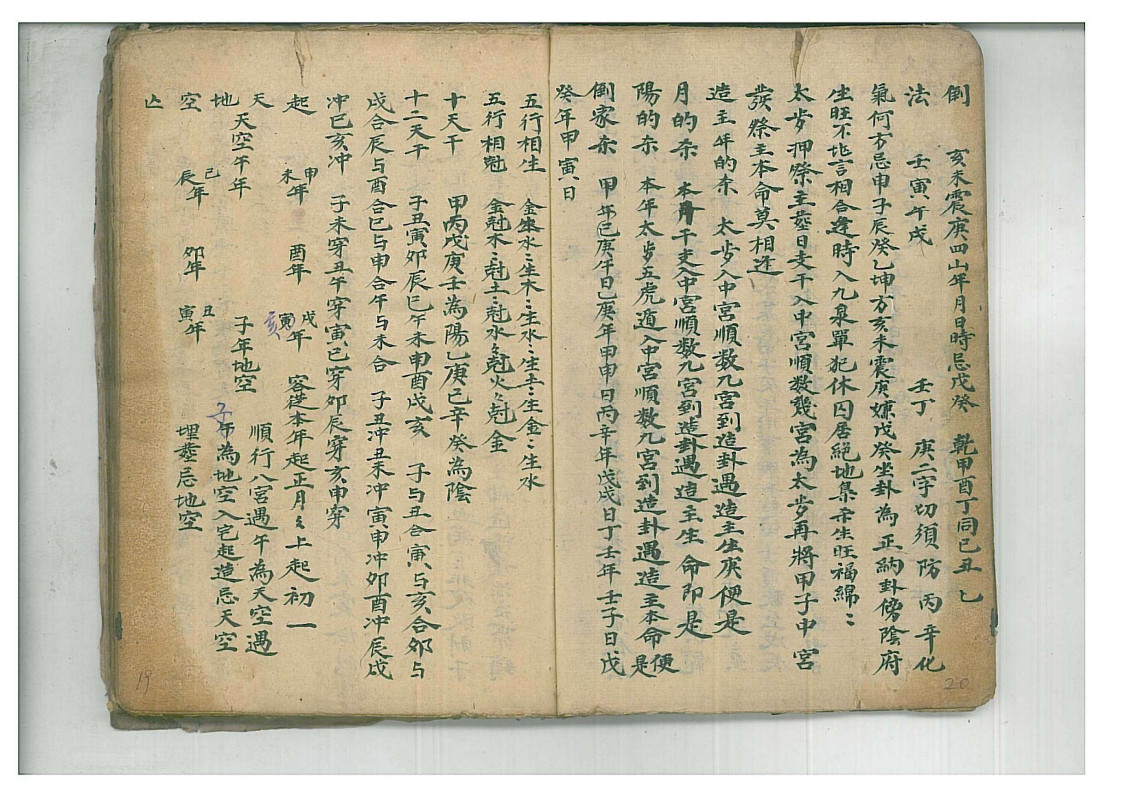 倒　亥未震庚四山年月日時忌戊癸　乾甲酉丁同已丑乙
法　壬寅午戌　壬丁　庚二字切須防丙辛化
氣何方忌申子辰癸乙坤方亥未震庚嫌戊癸坐卦為正納卦傍陰府
生旺不吉言相合逢時入九泉單犯休囚居絕地集示生旺福綿〻
太步押祭主塟日支干入中宮順数幾宮為太步再將甲子中宮
發祭主本命莫相逢
造主年的示　太步入中宮順数九宮到造卦遇造主生庚便是
月的示　本月干支入中宮順数九宮到造卦遇造主生命即是
陽的示　本年太步五虎遁入中宮順数九宮到造卦遇造主本命便是
倒家示　甲年已庚午日乙庚年甲申日丙辛年戊戌日丁壬年壬子日戊
癸年甲寅日
五行相生　金生水〻生木〻生水〻生　〻生金〻生水
五行相尅　金尅木〻尅土〻尅水〻尅火〻尅金
十天干　甲丙戊庚壬為陽乙庚已辛癸為陰
十二天干　子丑寅卯辰巳午未申酉戌亥　子与丑合寅与亥合卯与
戌合辰与酉合巳与申合午与未合　子丑冲丑未冲寅申冲卯酉冲辰戌
冲巳亥冲　子未穿丑午穿寅巳穿卯辰穿亥申穿
起　申未年　酉年　戌寅年　亥　容從本年起正月〻上起初一
天　天空午年　子年地空　順行八宮遇午為天空遇
地　子　為地空入宅起造忌天空
空　巳辰年　卯年　丑寅年　埋塟忌地空
亡
19
20